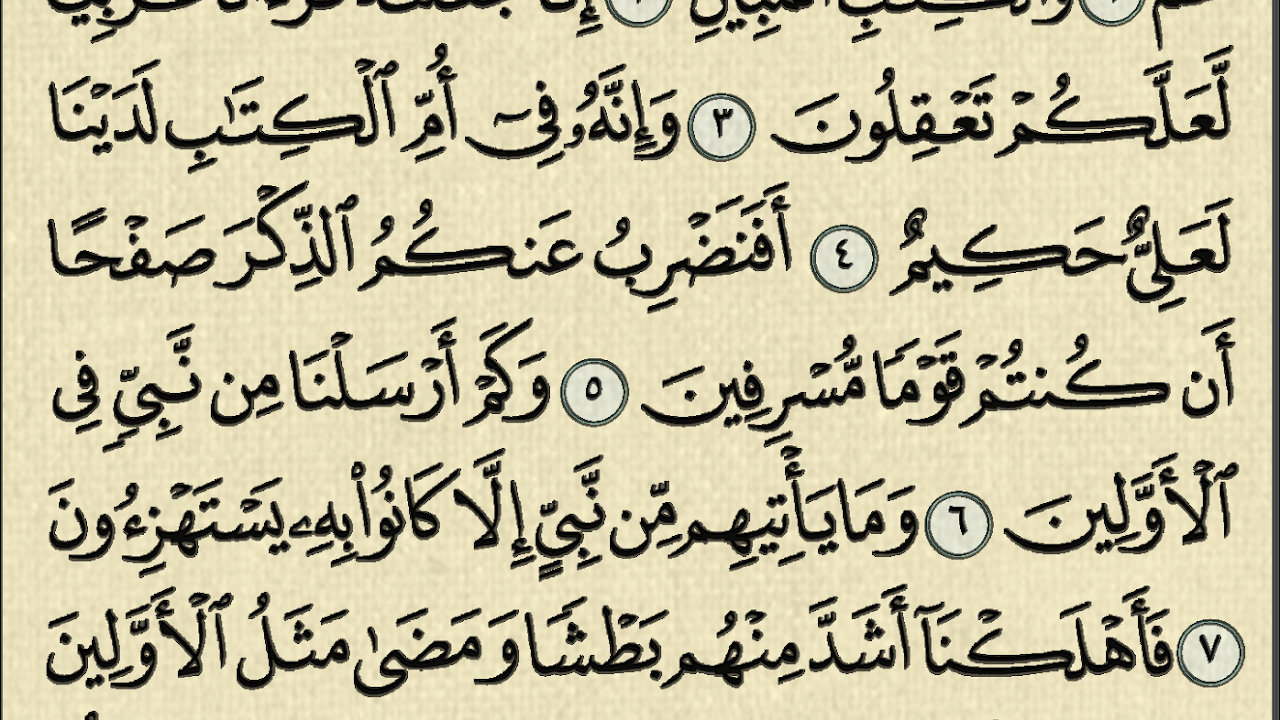 لَّعَلَّكُمْ تَعْقِلُونَ ٣ وَإِنَّهُۥ فِىٓ أُمِّ ٱلْكِتَـٰبِ لَدَيْنَا
لَعَلِىٌّ حَكِيمٌ ٤ أَفَنَضْرِبُ عَنكُمُ ٱلذِّكْرَ صَفْحًا
أَن كُنتُمْ قَوْمًا مُّسْرِفِينَ ٥ وَكَمْ أَرْسَلْنَا مِن نَّبِىٍّ فِى
ٱلْأَوَّلِينَ ٦ وَمَا يَأْتِيهِم مِّن نَّبِىٍّ إِلَّا كَانُوا۟ بِهِۦ يَسْتَهْزِءُونَ
٧ فَأَهْلَكْنَآ أَشَدَّ مِنْهُم بَطْشًا وَمَضَىٰ مَثَلُ ٱلْأَوَّلِينَ